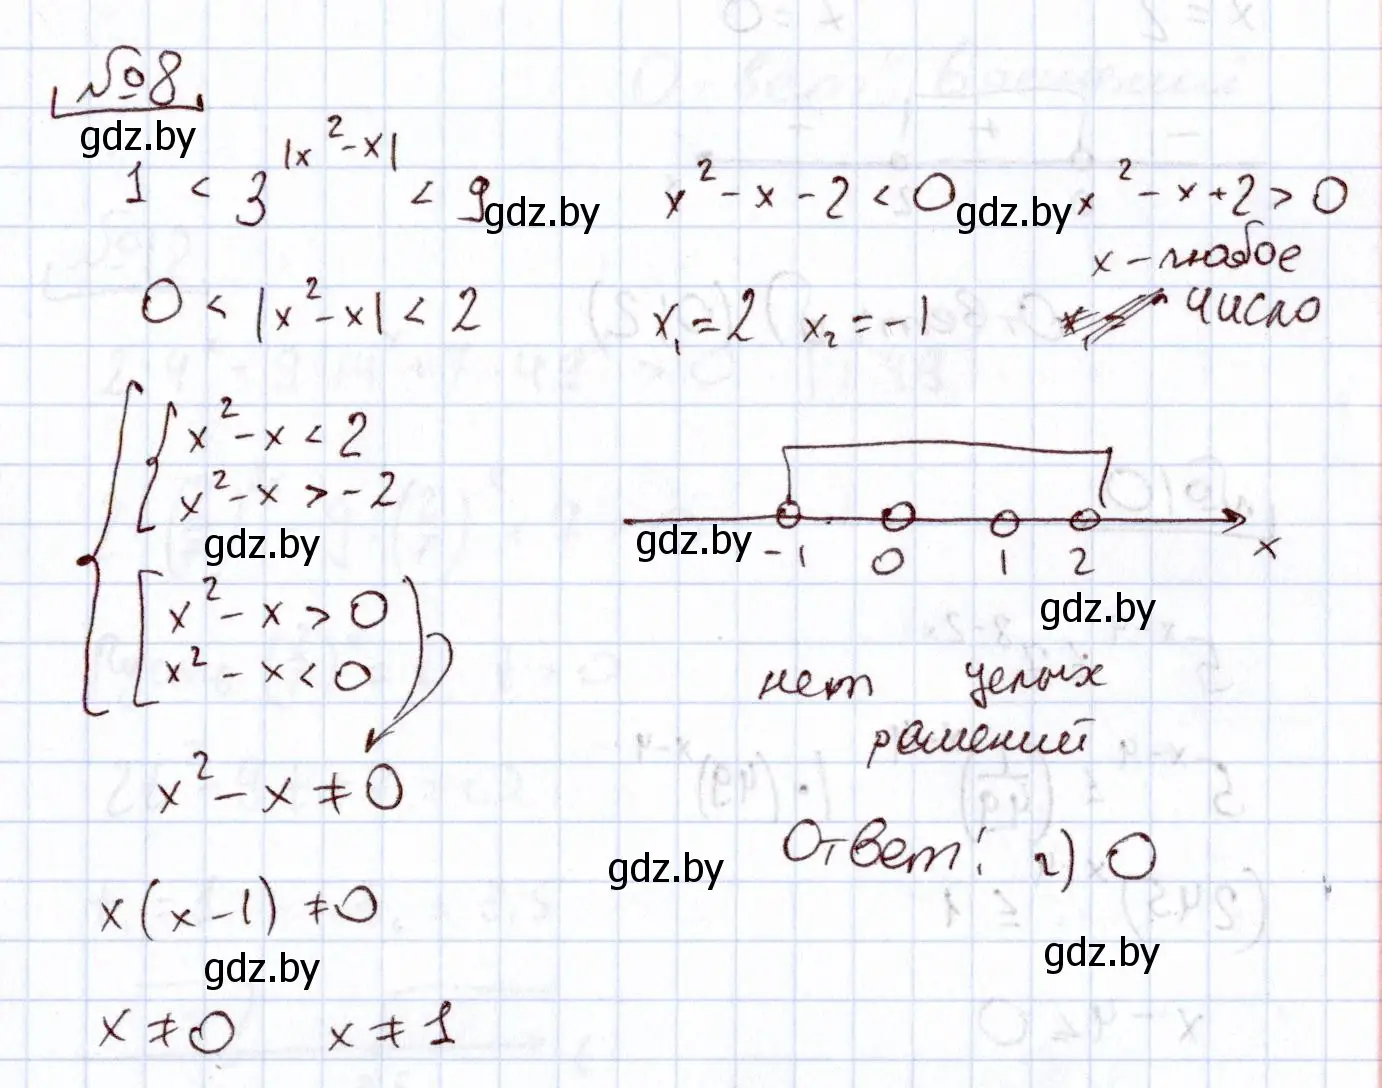 №8
gdz.by
1 < 3^{|x²-x|} < 9
gdz.by
0 < |x²-x| < 2
x²-x < 2
x²-x > -2
gdz.by
x²-x > 0
x²-x < 0
x²-x ≠ 0
x(x-1) ≠ 0
gdz.by
x ≠ 0 x ≠ 1
x²-x-2 < 0
gdz.by
x²-x+2 > 0
x - любое
число
x₁ = 2 x₂ = -1
gdz.by
-1 0 1 2 x
gdz.by
нет целых
решений
gdz.by
Ответ: г) 0
gdz.by